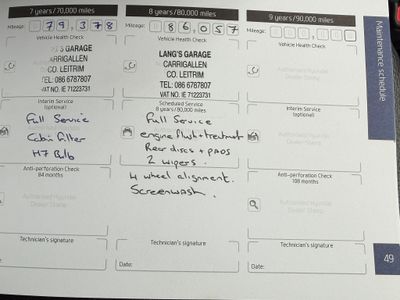 7 years/70,000 miles
Mileage: 79,378
Vehicle Health Check
'S GARAGE
CARRIGALLEN
CO. LEITRIM
TEL: 086 6787807
VAT NO. IE 71223731
Interim Service
(optional)
Full Service
Cabin Filter
H7 Bulb
Anti-perforation Check
84 months
Authorised Hyundai
Dealer Stamp
Technician's signature
Date:
8 years/80,000 miles
Mileage: 86,057
Vehicle Health Check
LANG'S GARAGE
CARRIGALLEN
CO. LEITRIM
TEL: 086 6787807
VAT NO. IE 71223731
Scheduled Service
8 years/80,000 miles
Full Service
engine flush + treatment
Rear discs + pads
2 wipers.
4 wheel alignment.
Screenwash.
Technician's signature
Date:
9 years/90,000 miles
Mileage:
Vehicle Health Check
Authorised Hyundai
Dealer Stamp
Interim Service
(optional)
Authorised Hyundai
Dealer Stamp
Anti-perforation Check
108 months
Authorised Hyundai
Dealer Stamp
Technician's signature
Date:
Maintenance schedule
49